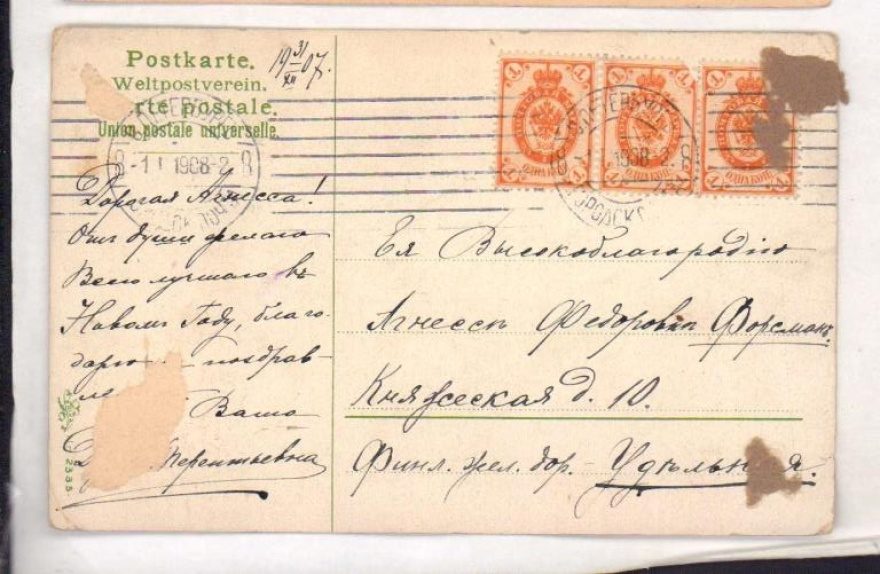 Postkarte.
Weltpostverein.
rte postale.
Union postale universelle.
19 31/XII 07.
8 -1 I 1908-2- 8
1908-2- 8
Дорогая Агнесса!
Отъ души желаю
Всего лучшаго въ
Новомъ Году, благо-
дарю поздрав-
ле
Ваша
Терентьевна
2535
Ея Высокоблагородію
Агнессѣ Федоровнѣ Форсманъ.
Княжеская д. 10.
Финл. жел. дор. - Удѣльная.